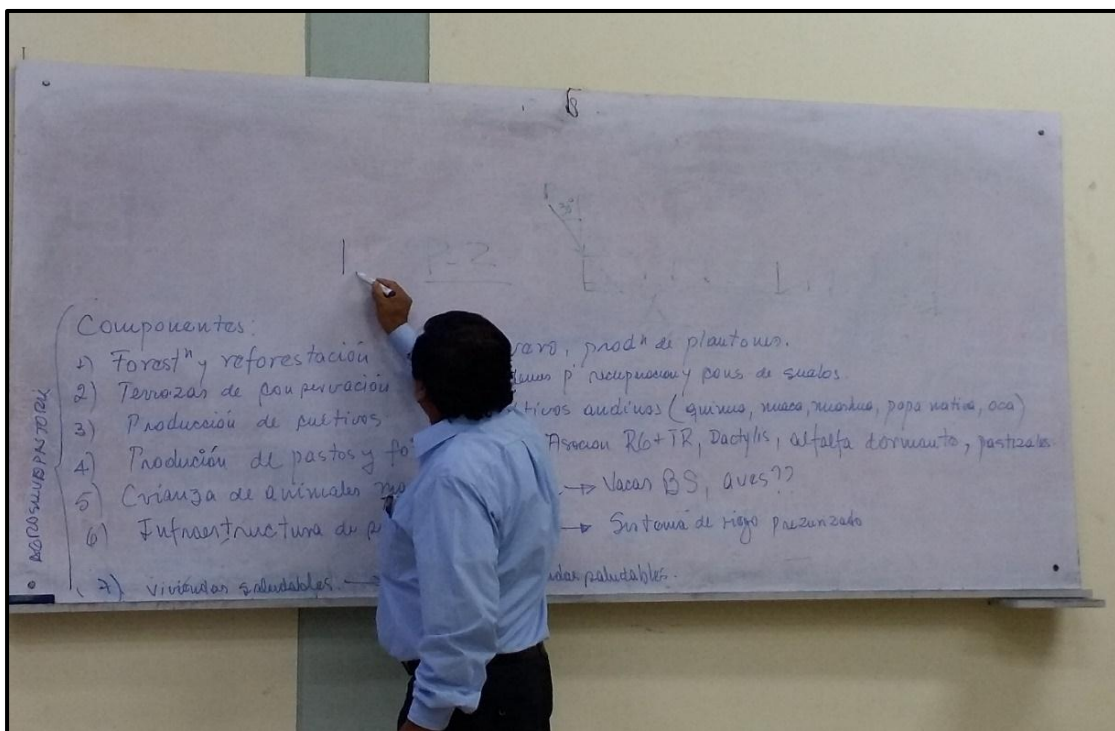 P-2
30°
Componentes:
1) Forestⁿ y reforestación prodⁿ de plantones.
2) Terrazas de conservación p' recuperacion y cons de suelos.
3) Producción de cultivos andinos (quinua, maca, mashua, papa nativa, oca)
4) Produción de pastos y Asocian RG+TR, Dactylis, alfalfa dormante, pastizales
5) Crianza de animales → Vacas BS, aves??
6) Infraestructura de → Sistema de riego prezurizado
7) viviendas saludables. → saludables.
AGROSILVOPASTORIL